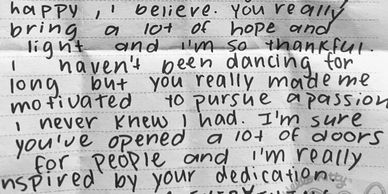 happy, i believe. you really
bring a lot of hope and
light and i'm so thankful.
i haven't been dancing for
long but you really made me
motivated to pursue a passion
i never knew i had. I'm sure
you've opened a lot of doors
for people and i'm really
inspired by your dedication.